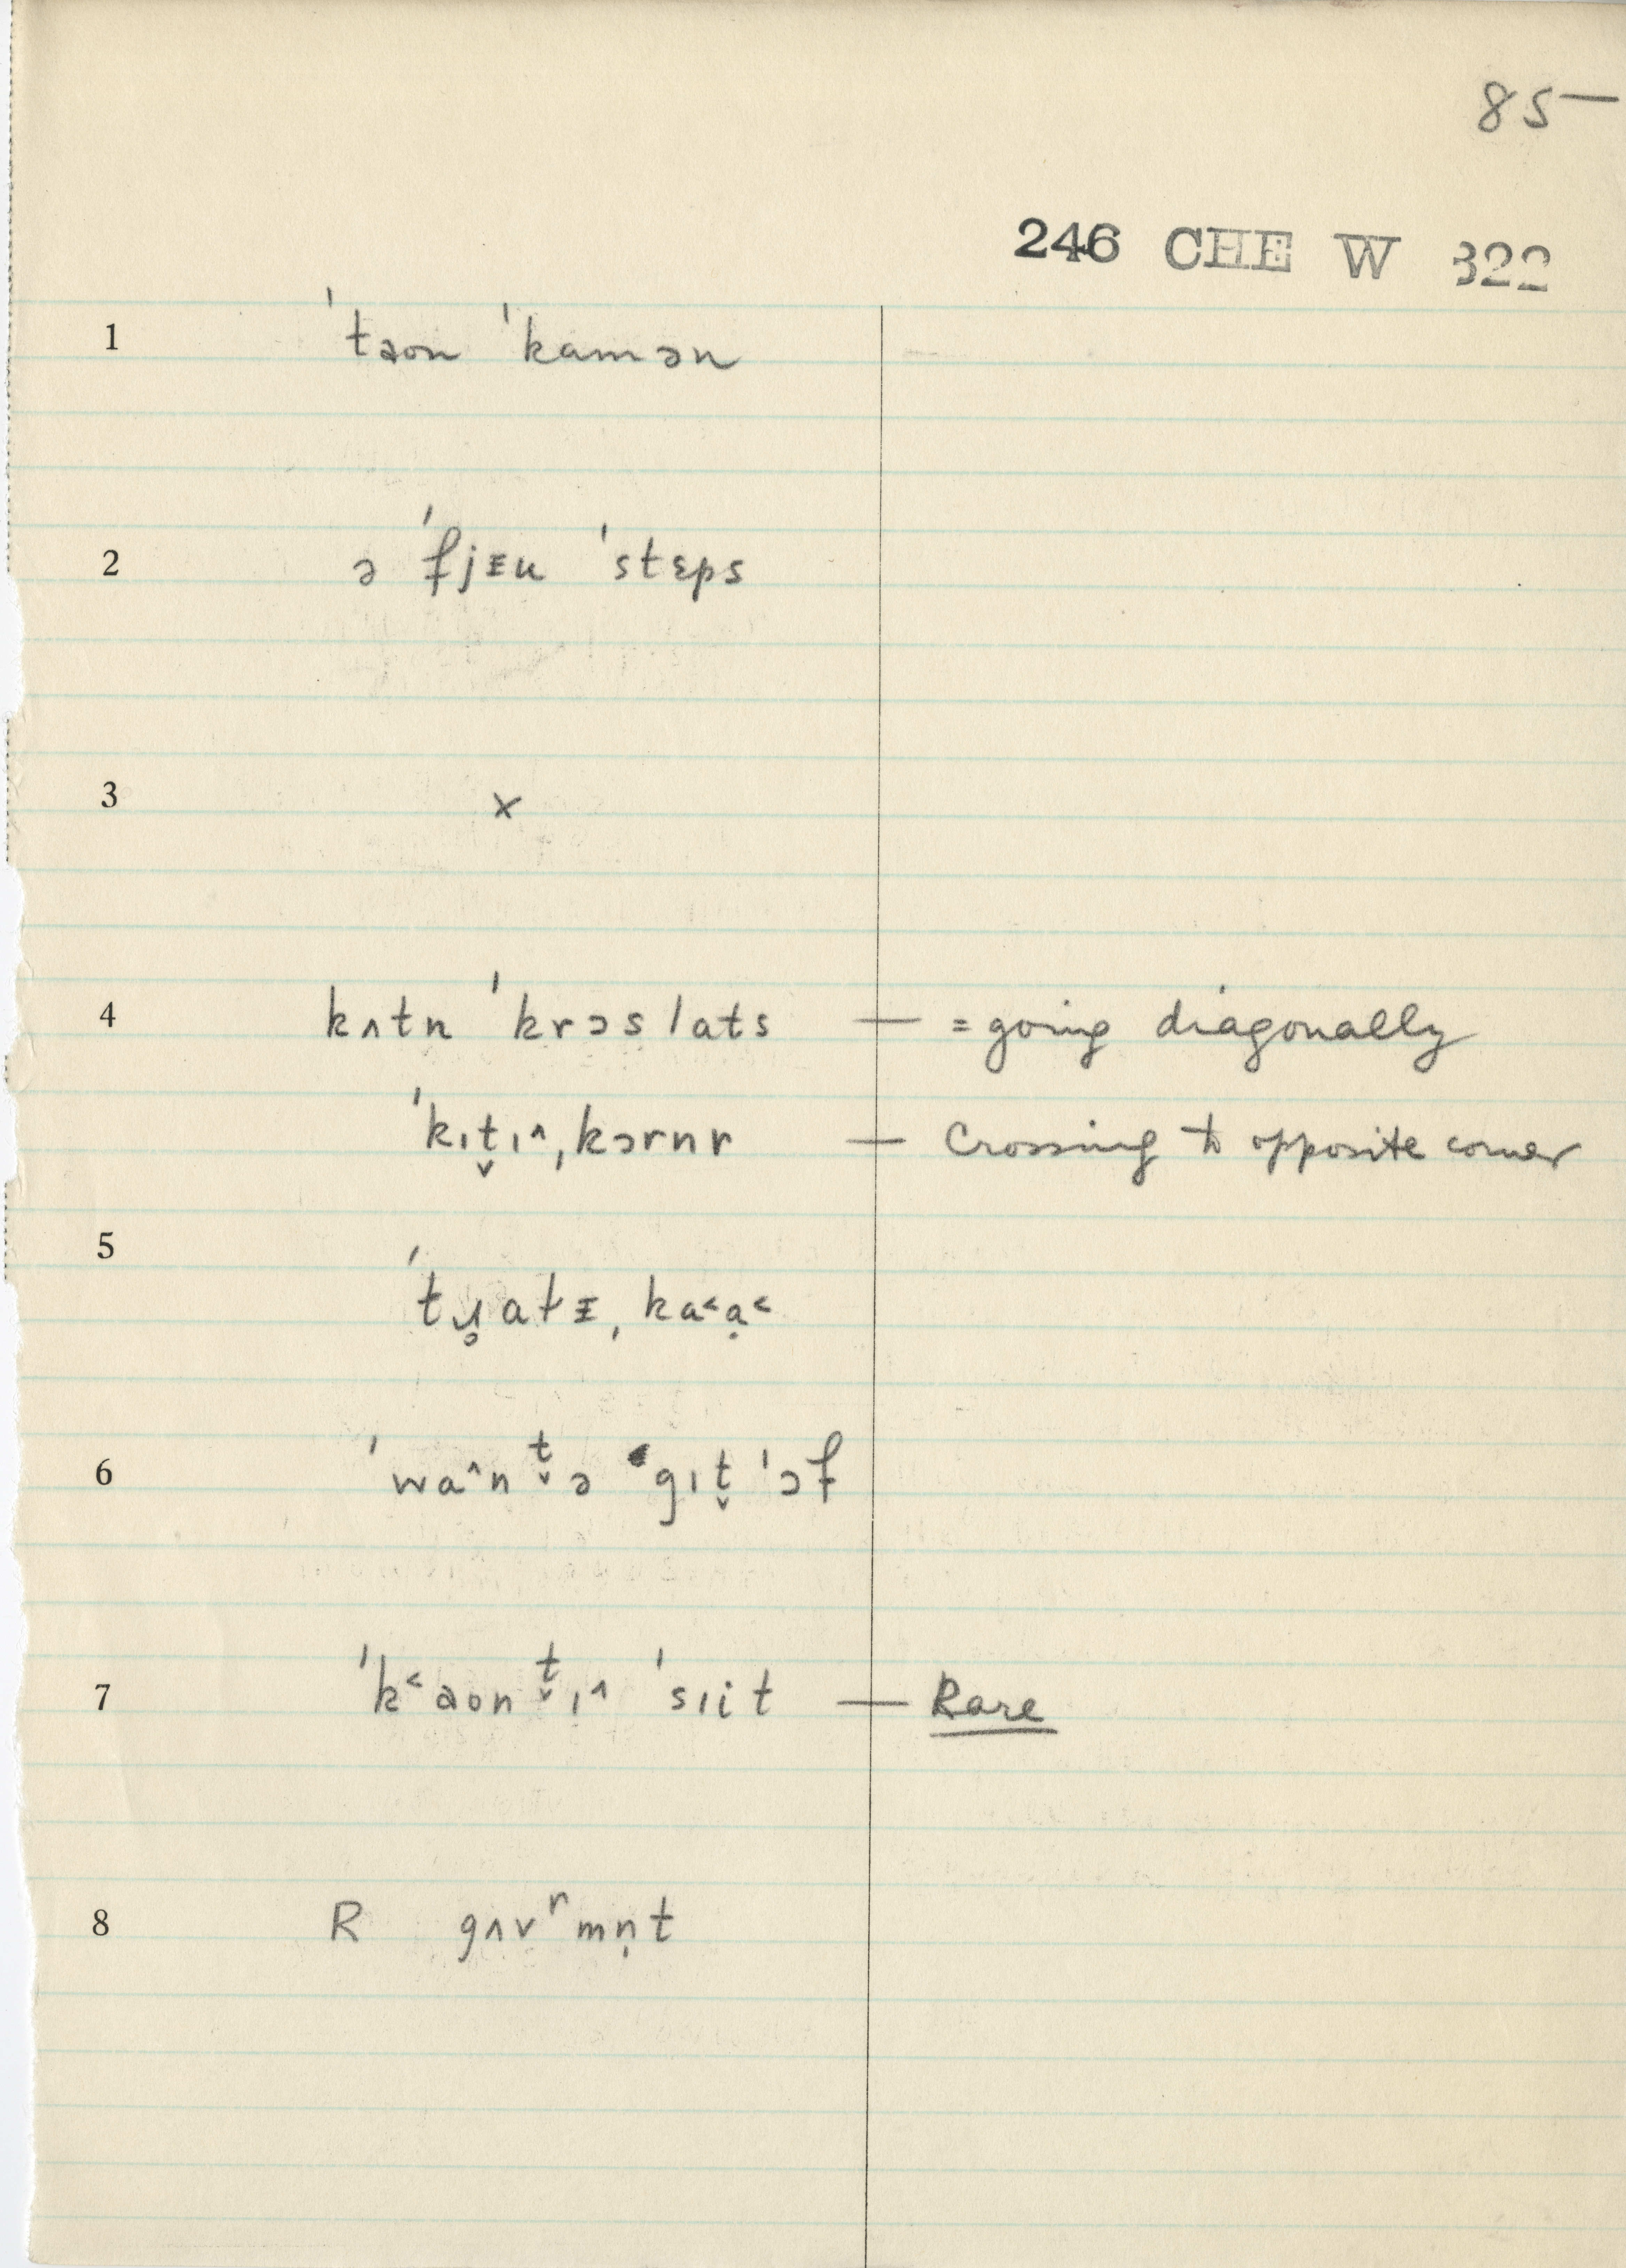 85—
246 CHE W 322
1 ˈtaon ˈkamən
2 ə ˈfjᵻu ˈstɛps
3 x
4 kʌtn ˈkrɔs lats — = going diagonally
ˈkɪt̬ɪ^ˌkɔrnr — Crossing to opposite corner
5
ˈtɹ̥atᵻˌka˂ạ˂
6 ˈwa^nt̬ə gɪt̬ ˈɔf
7 ˈk˂aont̬ɪ^ ˈsɪit — Rare
8 R gʌvʳmṇt